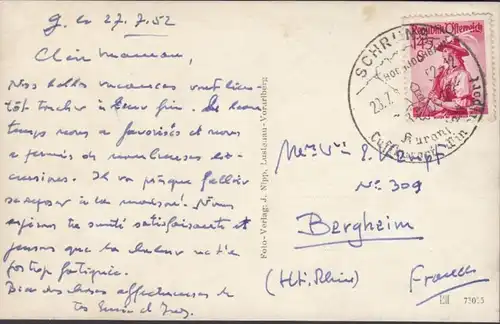 G. le 27.7.52
Chère maman,
Nos belles vacances vont bien-
tôt toucher à leur fin. Le beau
temps nous a favorisés et nous
a permis de nombreuses ex-
cursions. Il va presque falloir
songer à la maison. Nous
espérons ta santé satisfaisante et
pensons que la chaleur ne t'a
pas trop fatiguée.
Bien des choses affectueuses de
tes
Foto-Verlag: J. Nipp, Lustenau-Vorarlberg
Republik Österreich
SCHRUNS
Kurort
Mme Vve
No 309
Bergheim
(Ht. Rhin)
France